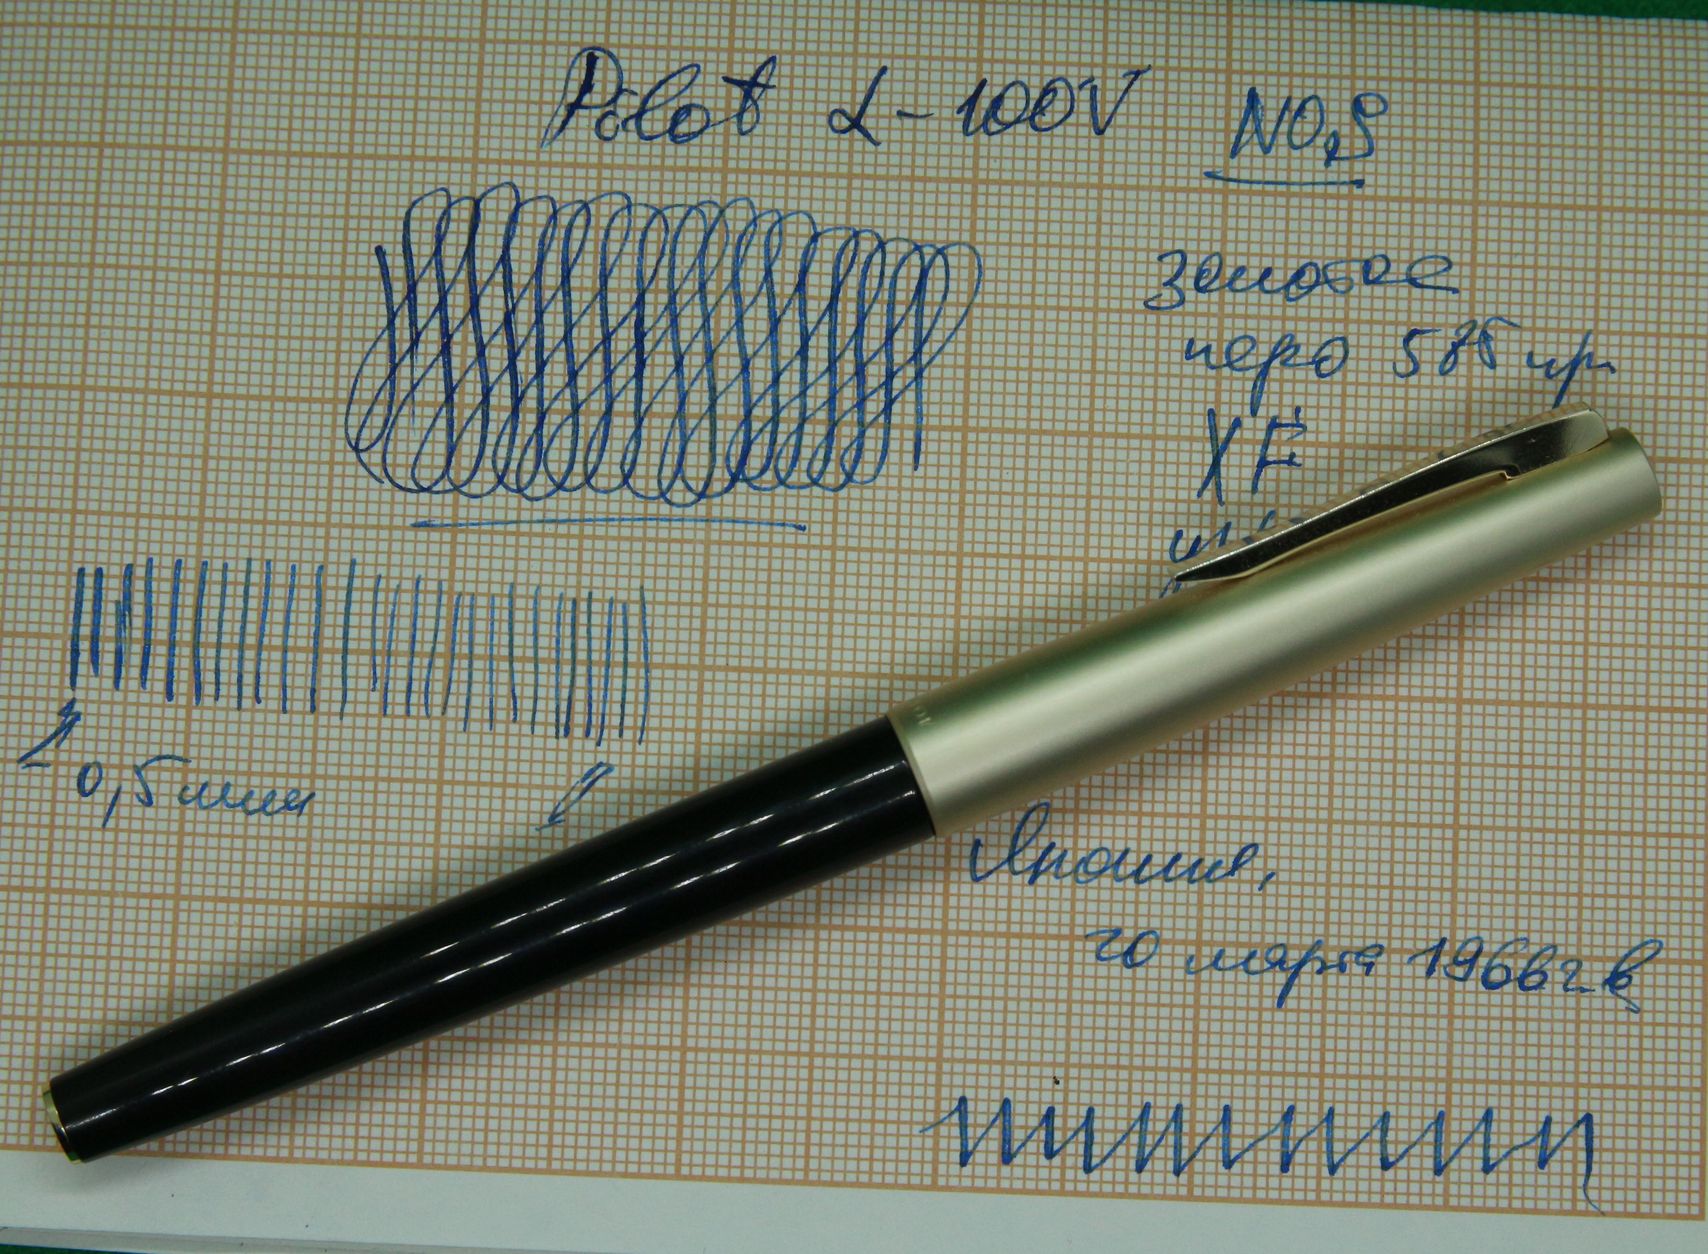 Pilot L-100V NOS
золотое
перо 585 пр
XF
0,5 мм
Япония,
20 марта 1966 г.в